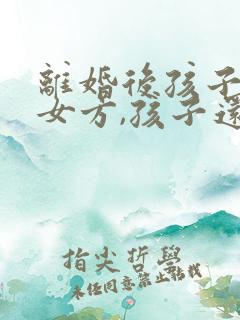 離婚後孩子
女方,孩子還
指尖哲學
未经同意禁止转载